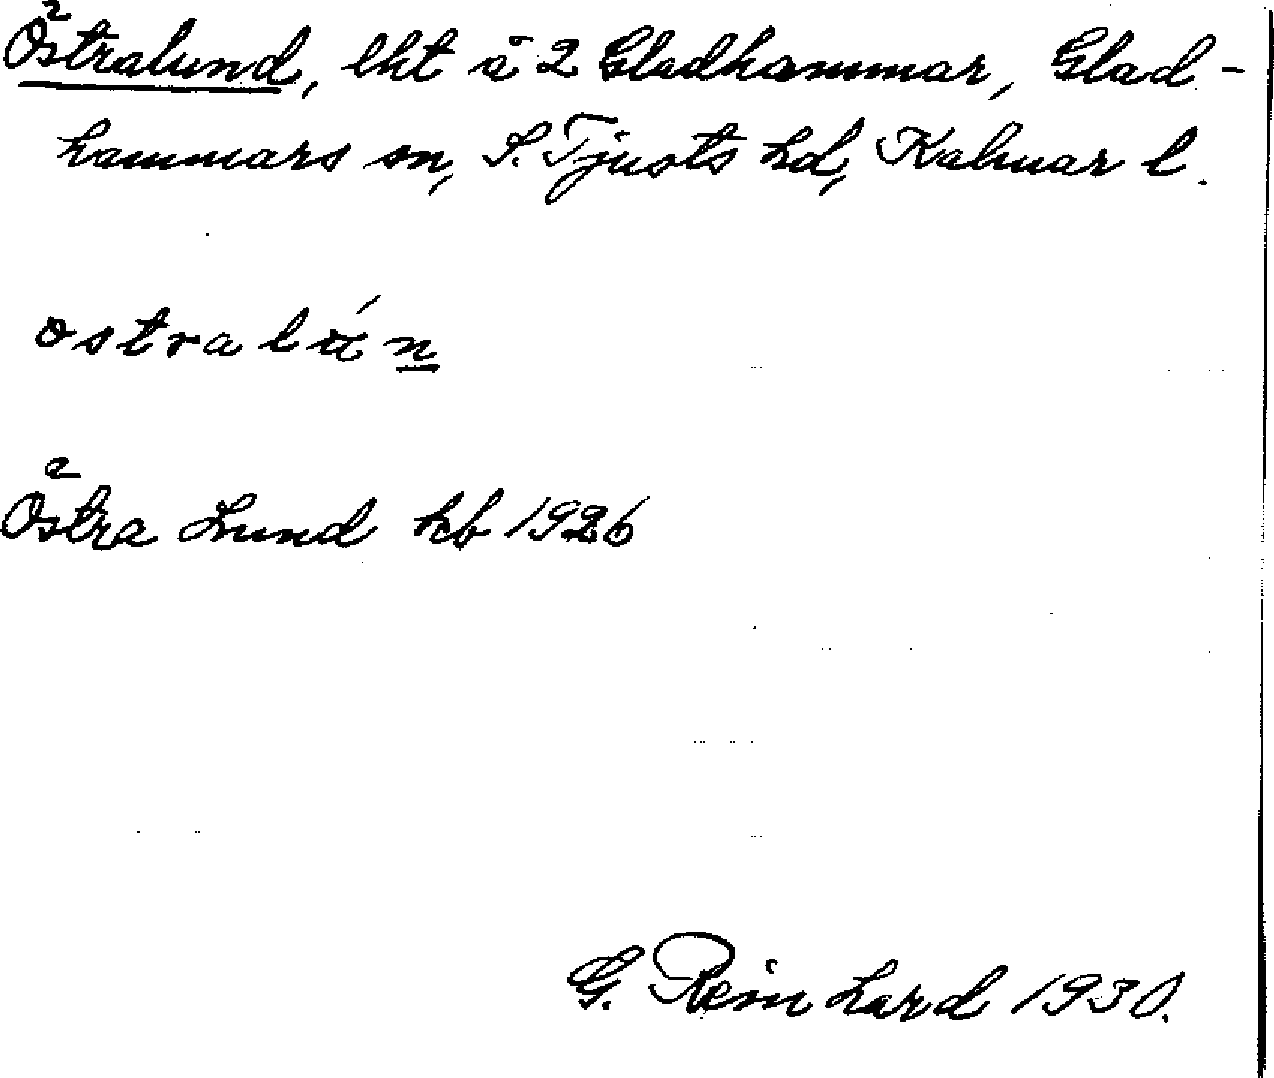 Östralund, lht å 2 Gladhammar, Glad-
hammars sn, S. Tjusts hd, Kalmar l.
Östra Lund kb 1926
G. Reinhard 1930.